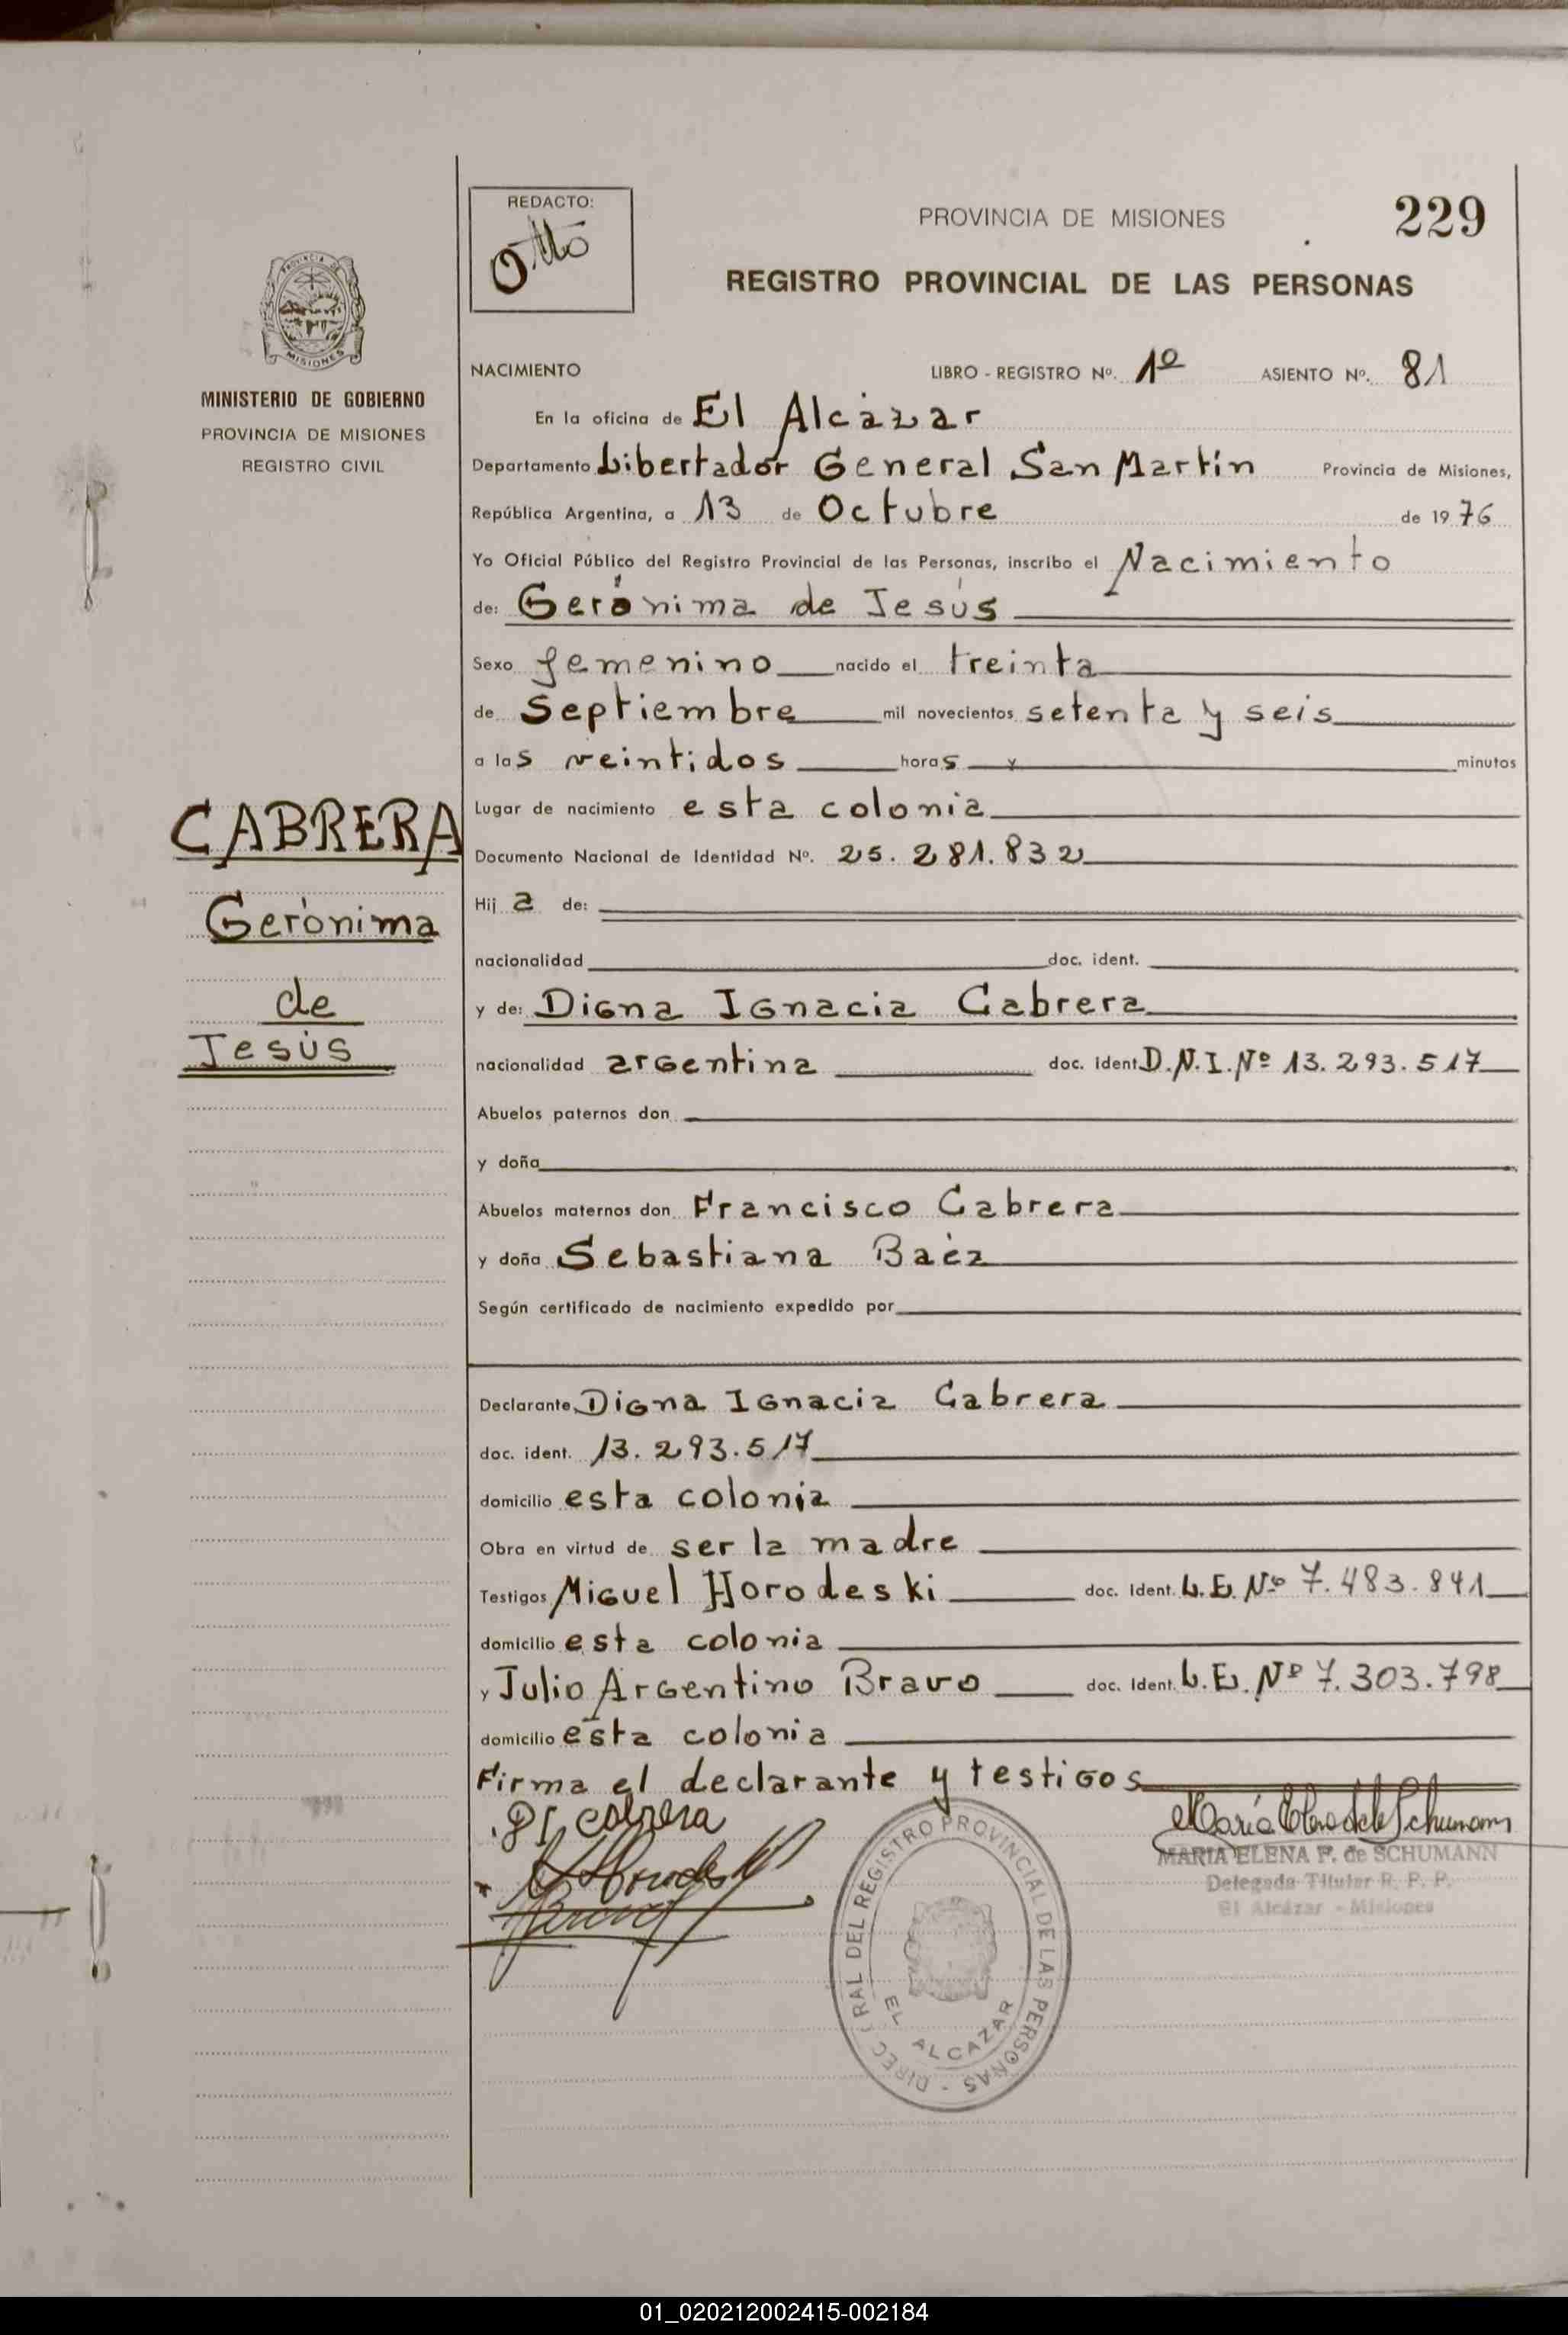 229
REDACTO:
Otto
PROVINCIA DE MISIONES
REGISTRO PROVINCIAL DE LAS PERSONAS
PROVINCIA DE
MISIONES
MINISTERIO DE GOBIERNO
PROVINCIA DE MISIONES
REGISTRO CIVIL
CABRERA
Gerónima
de
Jesús
NACIMIENTO LIBRO - REGISTRO Nº. 1º ASIENTO Nº. 81
En la oficina de El Alcázar
Departamento Libertador General San Martín Provincia de Misiones,
República Argentina, a 13 de Octubre de 1976
Yo Oficial Público del Registro Provincial de las Personas, inscribo el Nacimiento
de: Gerónima de Jesús
Sexo femenino nacido el treinta
de Septiembre mil novecientos setenta y seis
a las veintidos horas y minutos
Lugar de nacimiento esta colonia
Documento Nacional de Identidad Nº. 25.281.832
Hija de:
nacionalidad doc. ident.
y de: Digna Ignacia Cabrera
nacionalidad argentina doc. ident. D.N.I. Nº 13.293.517
Abuelos paternos don
y doña
Abuelos maternos don Francisco Cabrera
y doña Sebastiana Baéz
Según certificado de nacimiento expedido por
Declarante Digna Ignacia Cabrera
doc. ident. 13.293.517
domicilio esta colonia
Obra en virtud de ser la madre
Testigos Miguel Horodeski doc. Ident. L.E. Nº 7.483.841
domicilio esta colonia
y Julio Argentino Bravo doc. Ident. L.E. Nº 7.303.798
domicilio esta colonia
Firma el declarante y testigos
DI Cabrera
MARIA ELENA F. de SCHUMANN
Delegada Titular R. P. P.
El Alcázar - Misiones
DIREC GRAL DEL REGISTRO PROVINCIAL DE LAS PERSONAS -
EL ALCAZAR
01_020212002415-002184